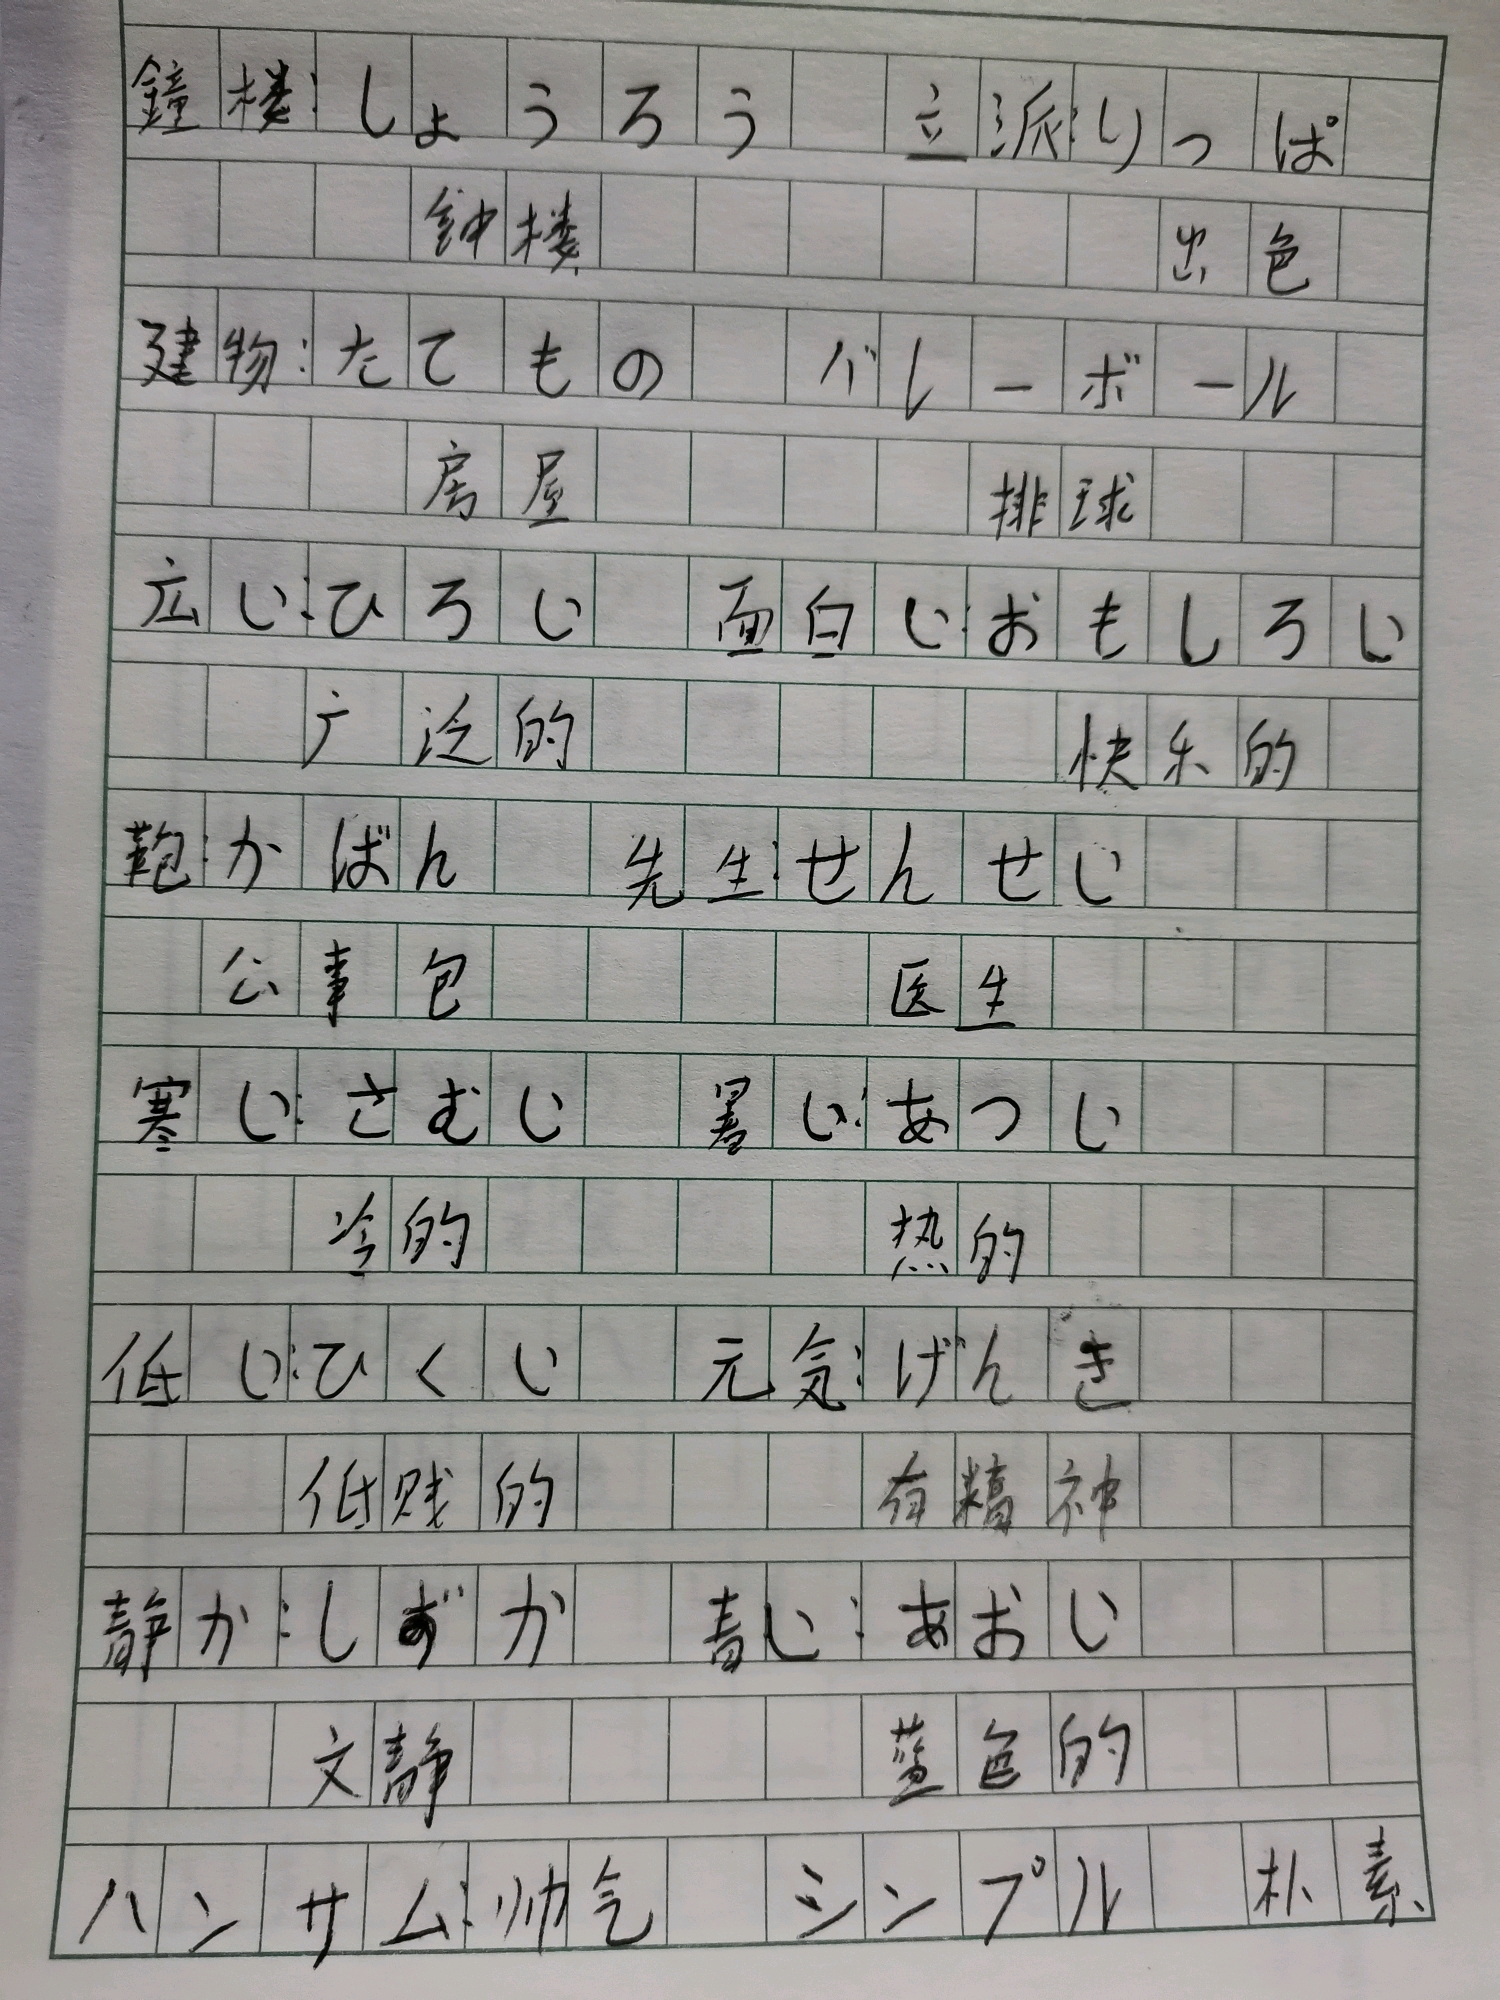 鐘楼:しょうろう 立派:りっぱ
钟楼 出色
建物:たてもの バレーボール
房屋 排球
広い:ひろい 面白い:おもしろい
广泛的 快乐的
鞄:かばん 先生:せんせい
公事包 医生
寒い:さむい 暑い:あつい
冷的 热的
低い:ひくい 元気:げんき
低贱的 有精神
静か:しずか 青い:あおい
文静 蓝色的
ハンサム:帅气 シンプル 朴素